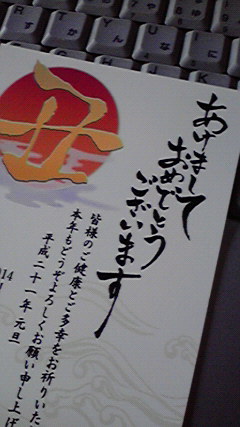 あけまして
おめでとう
ございます
皆様のご健康とご多幸をお祈りいた
本年もどうぞよろしくお願い申し上げ
平成二十一年 元旦
丑